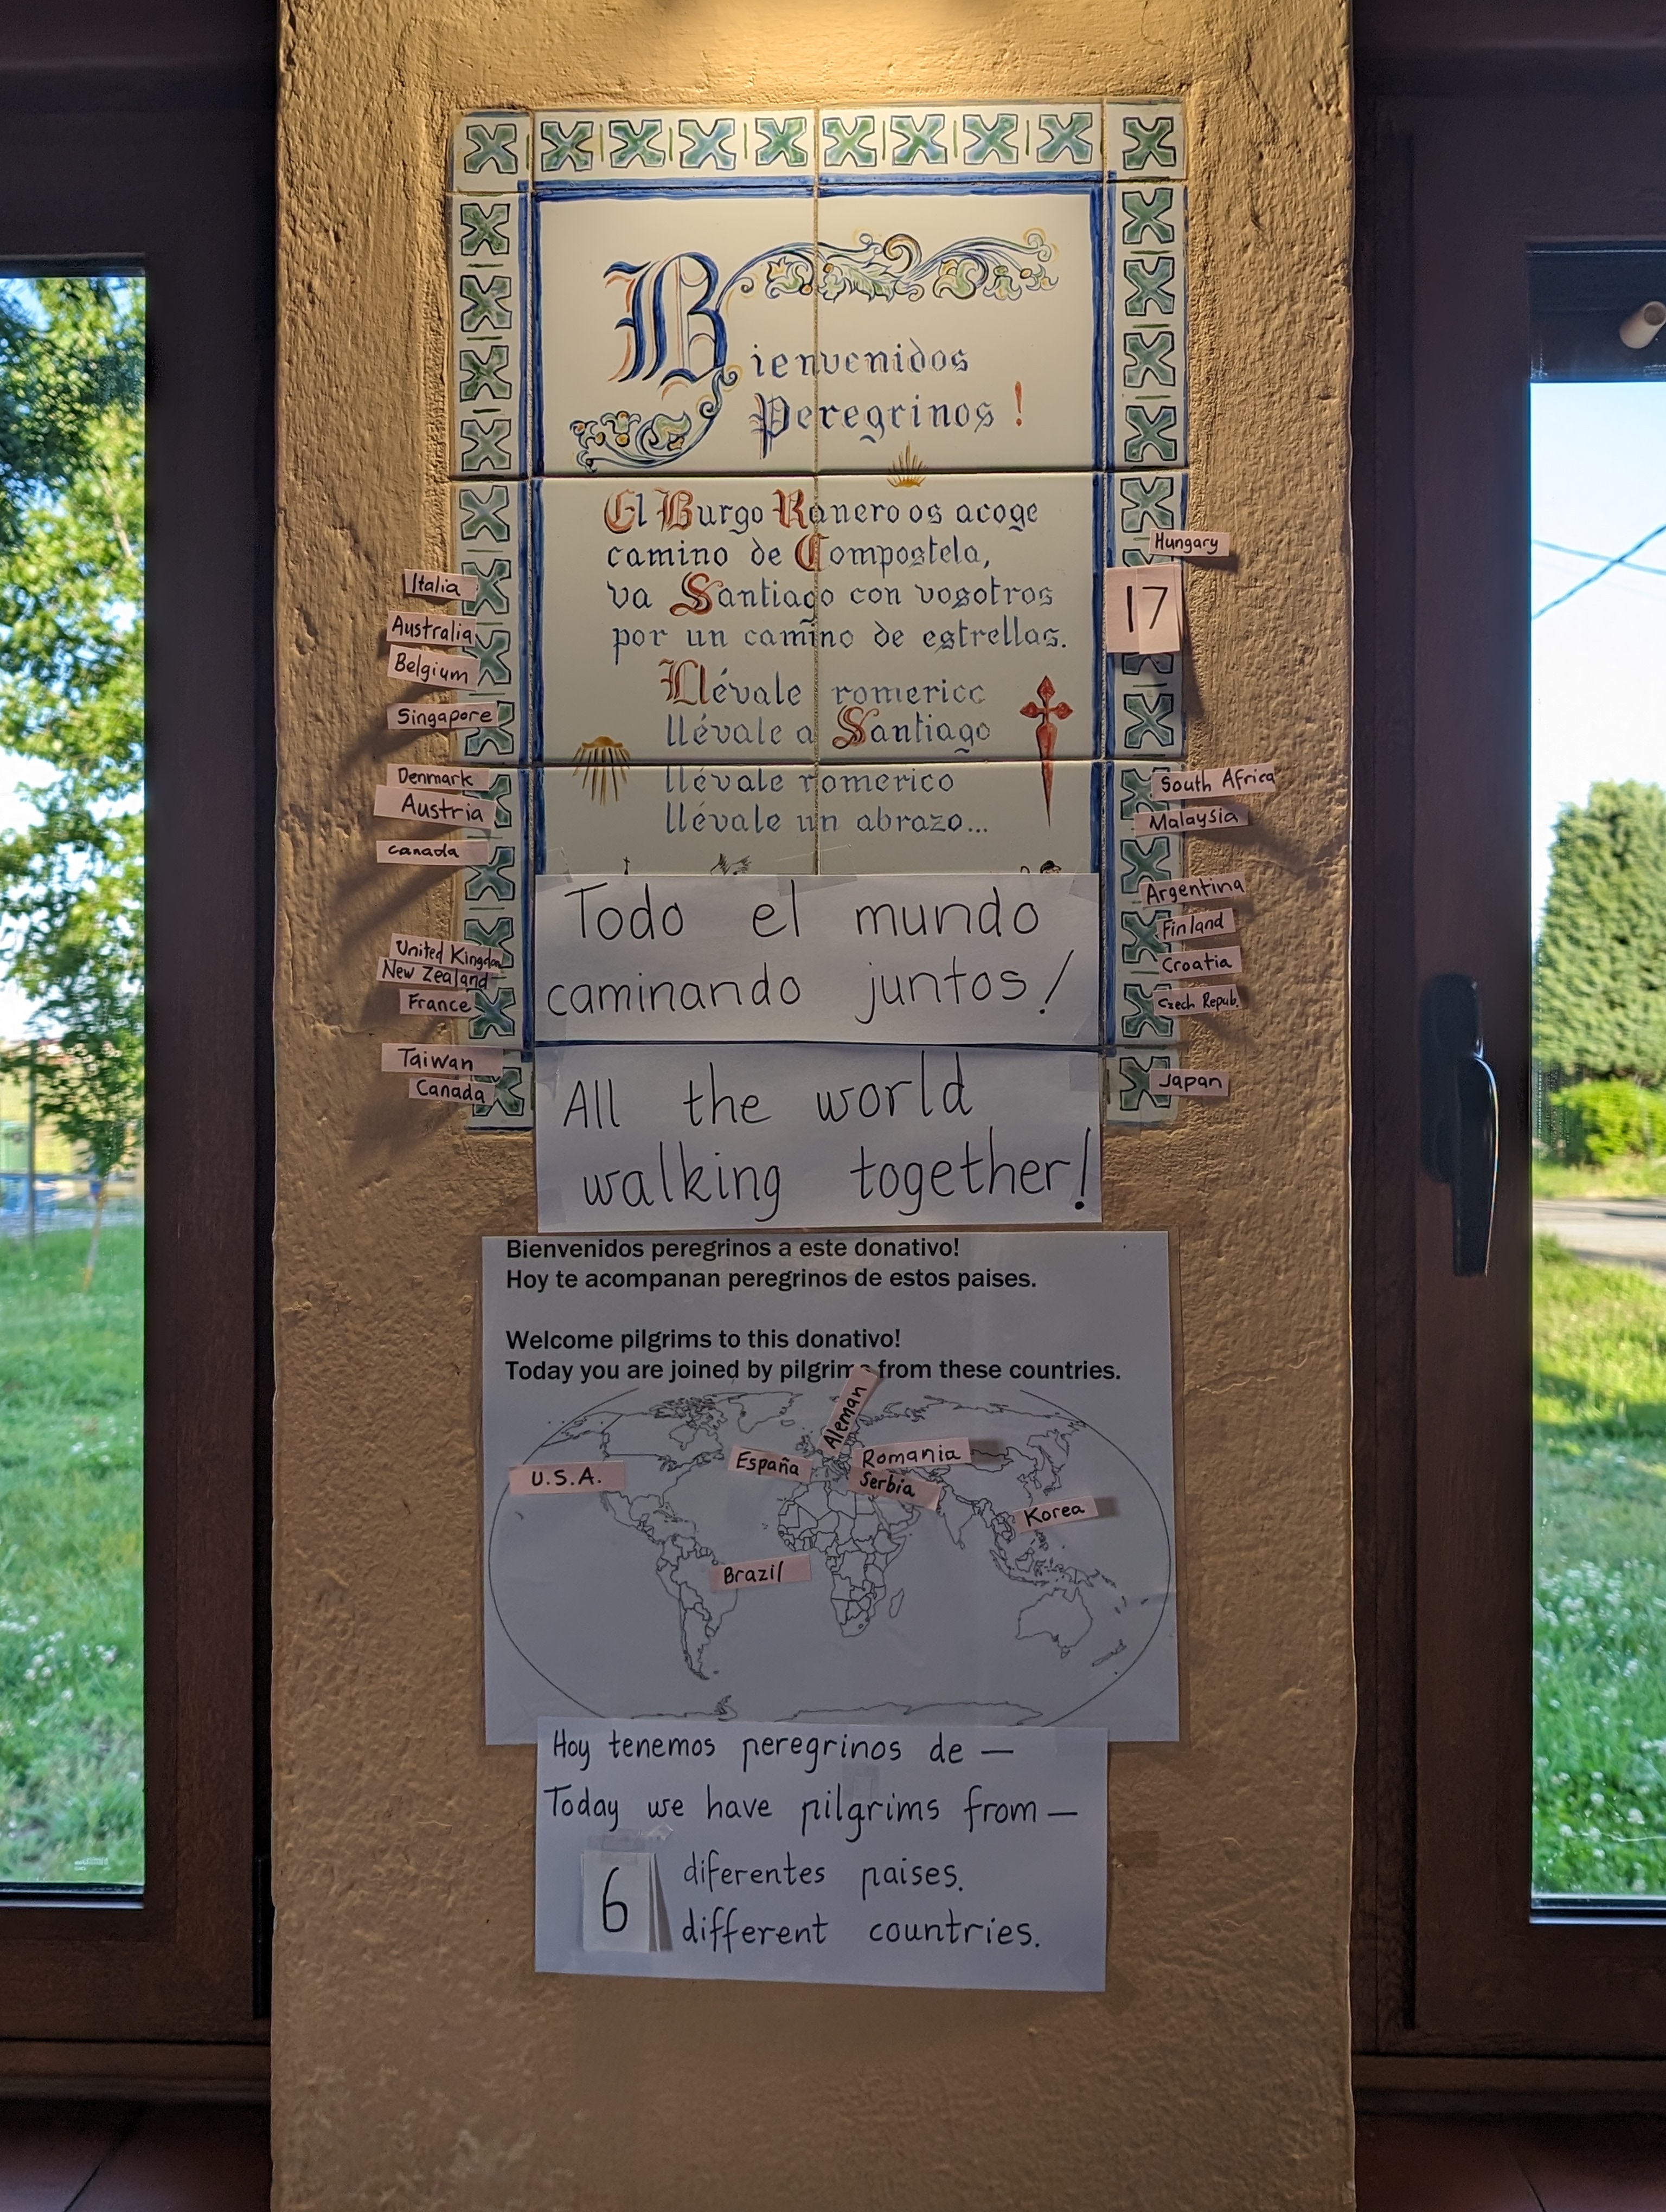 Bienvenidos
Peregrinos !
El Burgo Ranero os acoge
camino de Compostela,
va Santiago con vosotros
por un camino de estrellas.
Llévale romerico
llévale a Santiago
llévale romerico
llévale un abrazo...
Italia
Australia
Belgium
Singapore
Denmark
Austria
Canada
United Kingdom
New Zealand
France
Taiwan
Canada
Hungary
17
South Africa
Malaysia
Argentina
Finland
Croatia
Czech Repub.
Japan
Todo el mundo
caminando juntos!
All the world
walking together!
Bienvenidos peregrinos a este donativo!
Hoy te acompanan peregrinos de estos paises.
Welcome pilgrims to this donativo!
Today you are joined by pilgrims from these countries.
Aleman
España
Romania
U.S.A.
Serbia
Korea
Brazil
Hoy tenemos peregrinos de —
Today we have pilgrims from —
6 diferentes paises.
different countries.